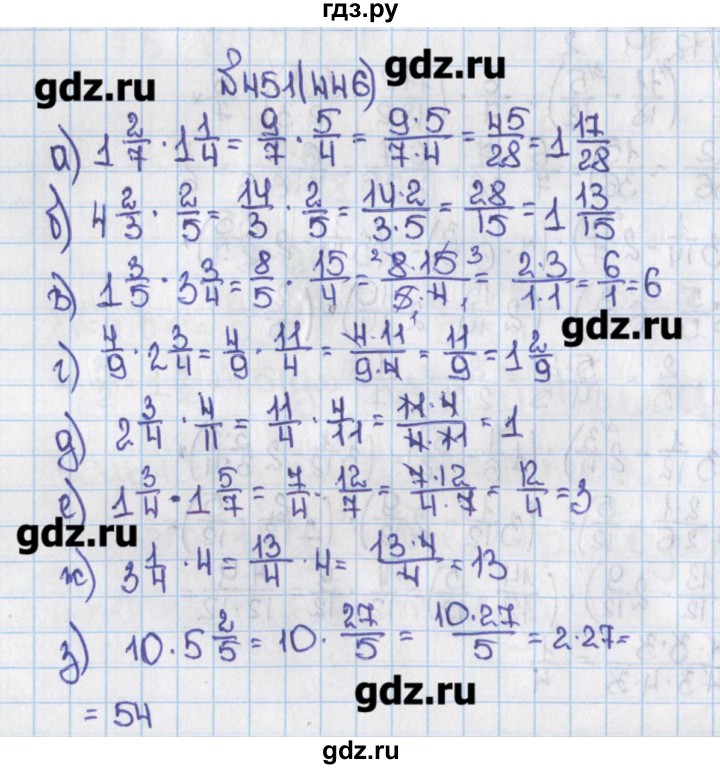 гдз.ру
№451(446)
gdz.ru
gdz.ru
а) 1 2/7 · 1 1/4 = 9/7 · 5/4 = 9·5/7·4 = 45/28 = 1 17/28
б) 4 2/3 · 2/5 = 14/3 · 2/5 = 14·2/3·5 = 28/15 = 1 13/15
в) 1 3/5 · 3 3/4 = 8/5 · 15/4 = 2 8·15 3/5·4 1 = 2·3/1·1 = 6/1 = 6
gdz.ru
г) 4/9 · 2 3/4 = 4/9 · 11/4 = 4·11/9·4 = 11/9 = 1 2/9
д) 2 3/4 · 4/11 = 11/4 · 4/11 = 11·4/4·11 = 1
е) 1 3/4 · 1 5/7 = 7/4 · 12/7 = 7·12/4·7 = 12/4 = 3
gdz.ru
ж) 3 1/4 · 4 = 13/4 · 4 = 13·4/4 = 13
з) 10 · 5 2/5 = 10 · 27/5 = 10·27/5 = 2·27 =
= 54
gdz.ru
gdz.ru